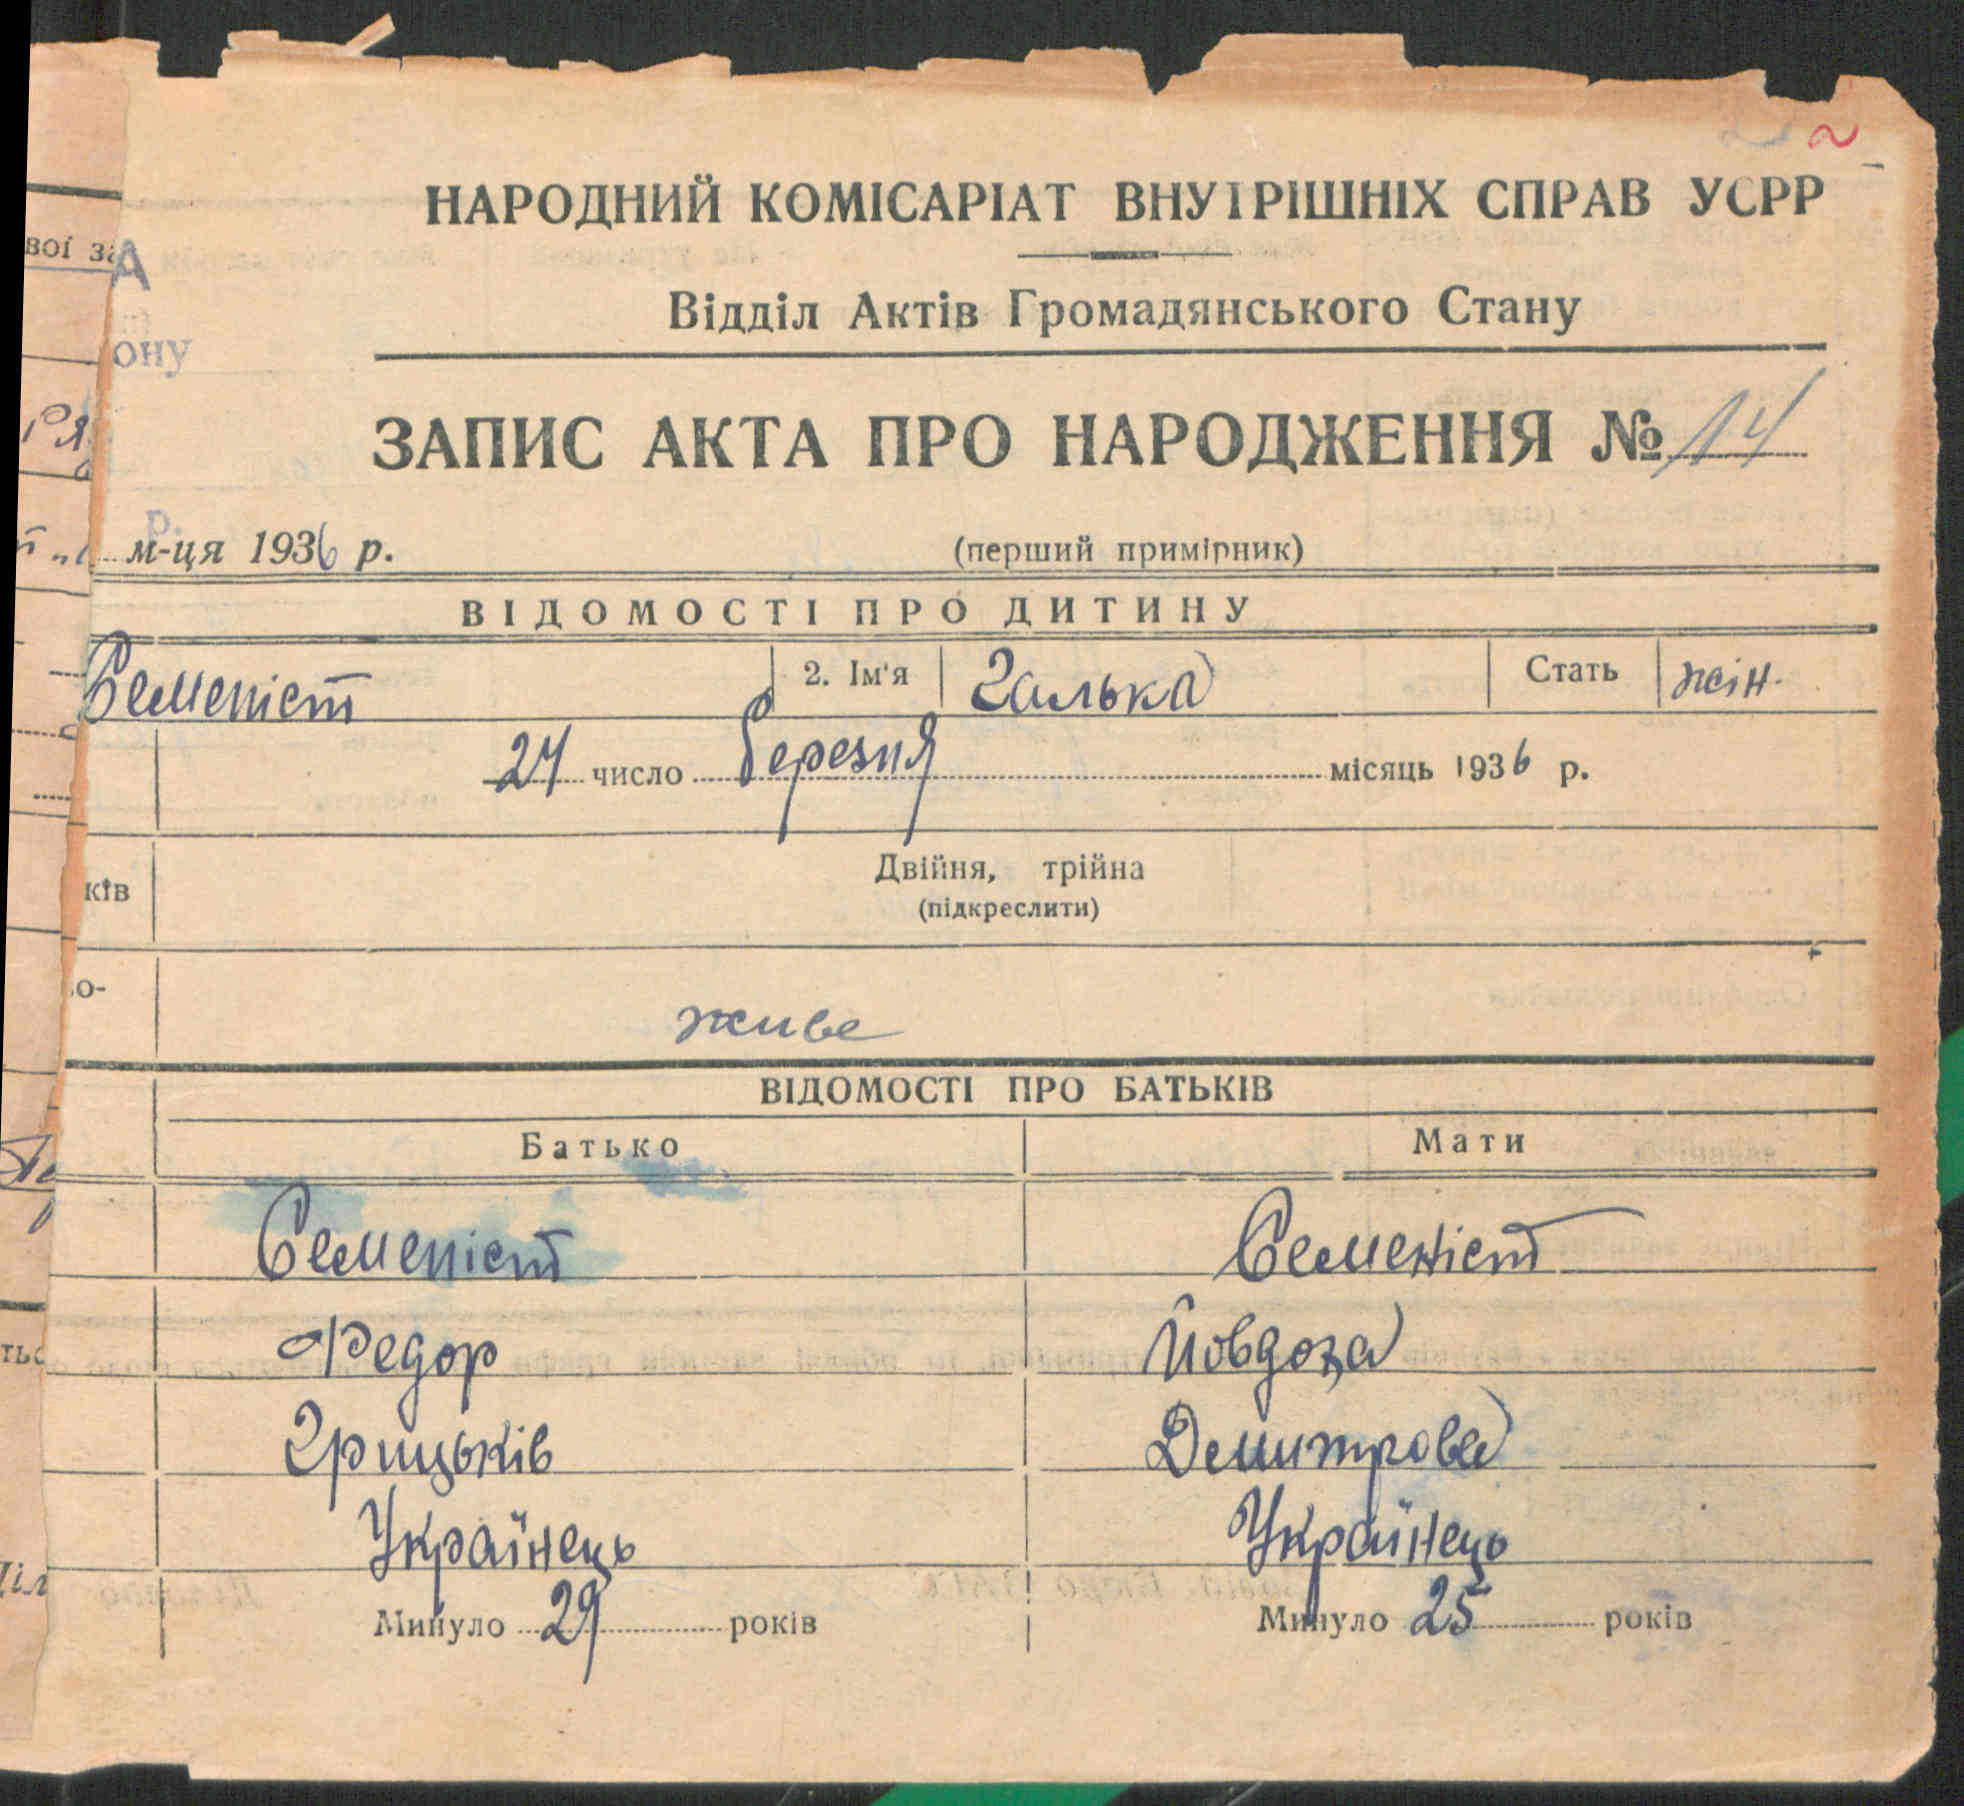 2
НАРОДНИЙ КОМІСАРІАТ ВНУТРІШНІХ СПРАВ УСРР
Відділ Актів Громадянського Стану
ЗАПИС АКТА ПРО НАРОДЖЕННЯ № 14
м-ця 1936 р. (перший примірник)
ВІДОМОСТІ ПРО ДИТИНУ
Семеніст 2. Ім'я Галька Стать жін.
24 число березня місяць 1936 р.
ків Двійня, трійна
(підкреслити)
живе
ВІДОМОСТІ ПРО БАТЬКІВ
Батько Мати
Семеніст Семеніст
Федор Йовдоха
Грицьків Демитрова
Українець Українець
Минуло 29 років Минуло 25 років